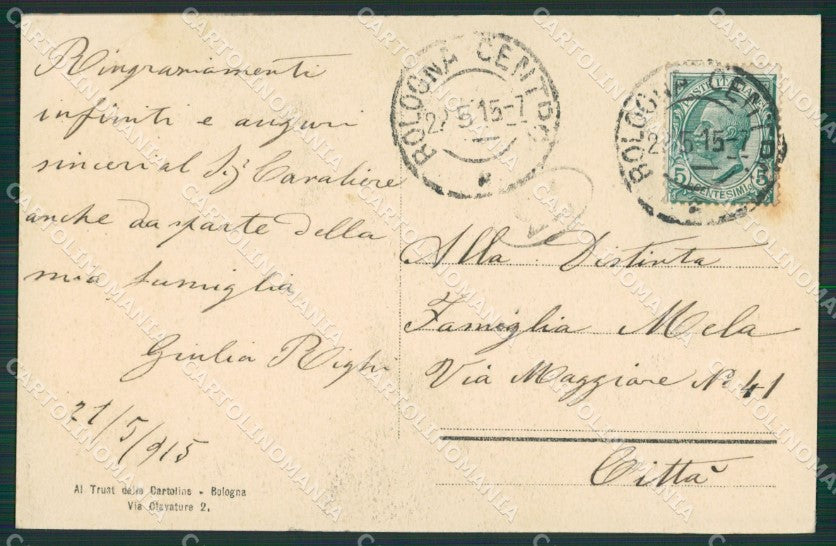 Ringraziamenti
infiniti e auguri
sinceri al Sig Cavaliere
anche da parte della
mia famiglia
Giulia Righi
21/5/915
Al Trust delle Cartoline - Bologna
Via Clavature 2.
BOLOGNA CENTRO
22·5·15-7
POSTE ITALIANE
5 CENTESIMI 5
BOLOGNA CENTRO
22·5·15-7
Alla Distinta
Famiglia Mela
Via Maggiore No 41
Città
CARTOLINOMANIA